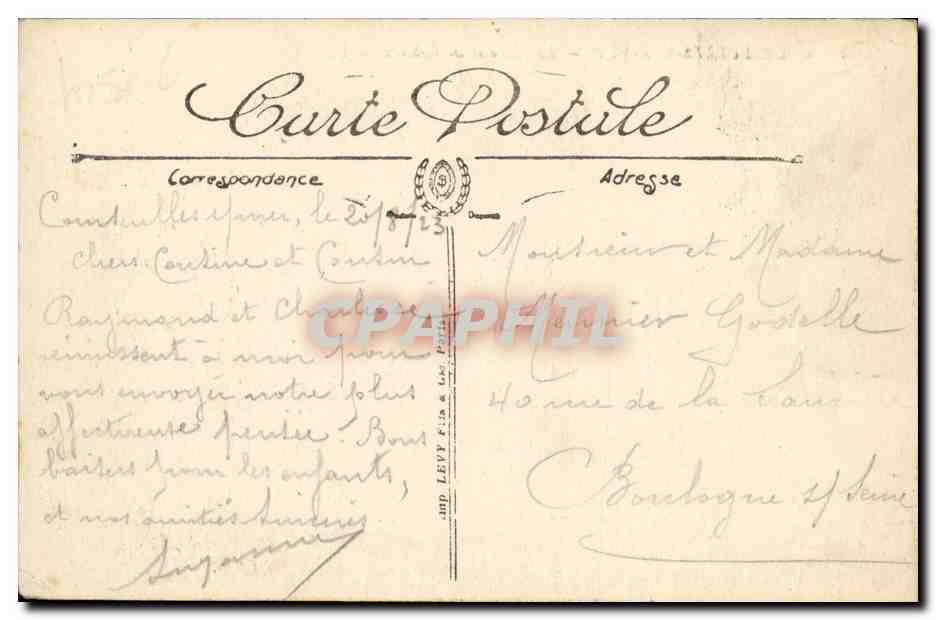 Carte Postale
Correspondance
Adresse
Courseulles s/mer, le 20/8/23
Chers Cousine et Cousin
Raymond et
réunissent à moi pour
vous envoyer notre plus
affectueuse pensée. Bons
baisers pour les enfants,
et nos amitiés sincères
Suzanne
Imp LEVY Fils & Cie Paris
Monsieur et Madame
Meunier Godelle
40 rue de la
Boulogne s/ Seine
CPAPHIL